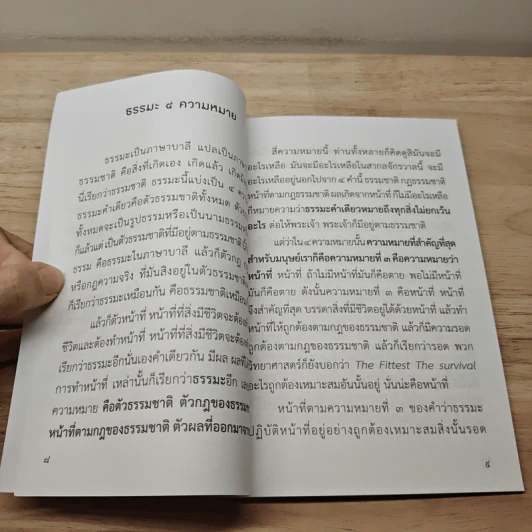 ธรรมะ ๔ ความหมาย
ธรรมะเป็นภาษาบาลี แปลเป็นภาษา
ธรรมชาติ คือสิ่งที่เกิดเอง เกิดแล้ว เกิด
นี้เรียกว่าธรรมชาติ ธรรมะนี้แบ่งเป็น ๔ ความ
ธรรมะคำเดียวคือตัวธรรมชาติทั้งหมด ตัว
ทั้งหมดจะเป็นรูปธรรมหรือเป็นนามธรรม
ก็แล้วแต่ เป็นตัวธรรมชาติที่มีอยู่ตามธรรมชาติ
ธรรม คือธรรมะในภาษาบาลี แล้วก็ตัวกฎ
หรือกฎความจริง ที่มันสิงอยู่ในตัวธรรมชาติ
ก็เรียกว่าธรรมะเหมือนกัน คือธรรมชาติเหมือน
แล้วก็ตัวหน้าที่ หน้าที่ที่สิ่งมีชีวิตจะต้อง
ชีวิตและต้องทำหน้าที่ หน้าที่ที่สิ่งมีชีวิตจะต้องทำ
เรียกว่าธรรมะอีกนั่นเองคำเดียวกัน มีผล ผล
การทำหน้าที่ เหล่านั้นก็เรียกว่าธรรมะอีก
ความหมาย คือตัวธรรมชาติ ตัวกฎของธรรมชาติ
หน้าที่ตามกฎของธรรมชาติ ตัวผลที่ออกมาจาก
๘
สี่ความหมายนี้ ท่านทั้งหลายก็คิดดูสิมันจะมี
อะไรเหลือ มันจะมีอะไรเหลือในสากลจักรวาลนี้ จะมี
อะไรเหลืออยู่นอกไปจาก ๔ คำนี้ ธรรมชาติ กฎธรรมชาติ
หน้าที่ตามกฎธรรมชาติ ผลเกิดจากหน้าที่ ก็ไม่มีอะไรเหลือ
ก็หมายความว่าธรรมะคำเดียวหมายถึงทุกสิ่งไม่ยกเว้น
อะไร ต่อให้พระเจ้า พระเจ้าก็มีอยู่ตามธรรมชาติ
แต่ว่าใน ๔ ความหมายนั้น ความหมายที่สำคัญที่สุด
สำหรับมนุษย์เราก็คือความหมายที่ ๓ คือความหมายว่า
หน้าที่ หน้าที่ ถ้าไม่มีหน้าที่มันก็คือตาย พอไม่มีหน้าที่
มันก็คือตาย ดังนั้นความหมายที่ ๓ คือหน้าที่ หน้าที่
จึงสำคัญที่สุด บรรดาสิ่งที่มีชีวิตอยู่ได้ด้วยหน้าที่ แล้วทำ
หน้าที่ให้ถูกต้องตามกฎของธรรมชาติ แล้วก็มีความรอด
ถูกต้องตามกฎของธรรมชาติ แล้วก็เรียกว่ารอด พวก
วิทยาศาสตร์ก็ยังบอกว่า The Fittest The survival
อะไรถูกต้องเหมาะสมอันนั้นอยู่ นั่นน่ะคือหน้าที่
หน้าที่ตามความหมายที่ ๓ ของคำว่าธรรมะ
ปฏิบัติหน้าที่อยู่อย่างถูกต้องเหมาะสมสิ่งนั้นรอด
๙